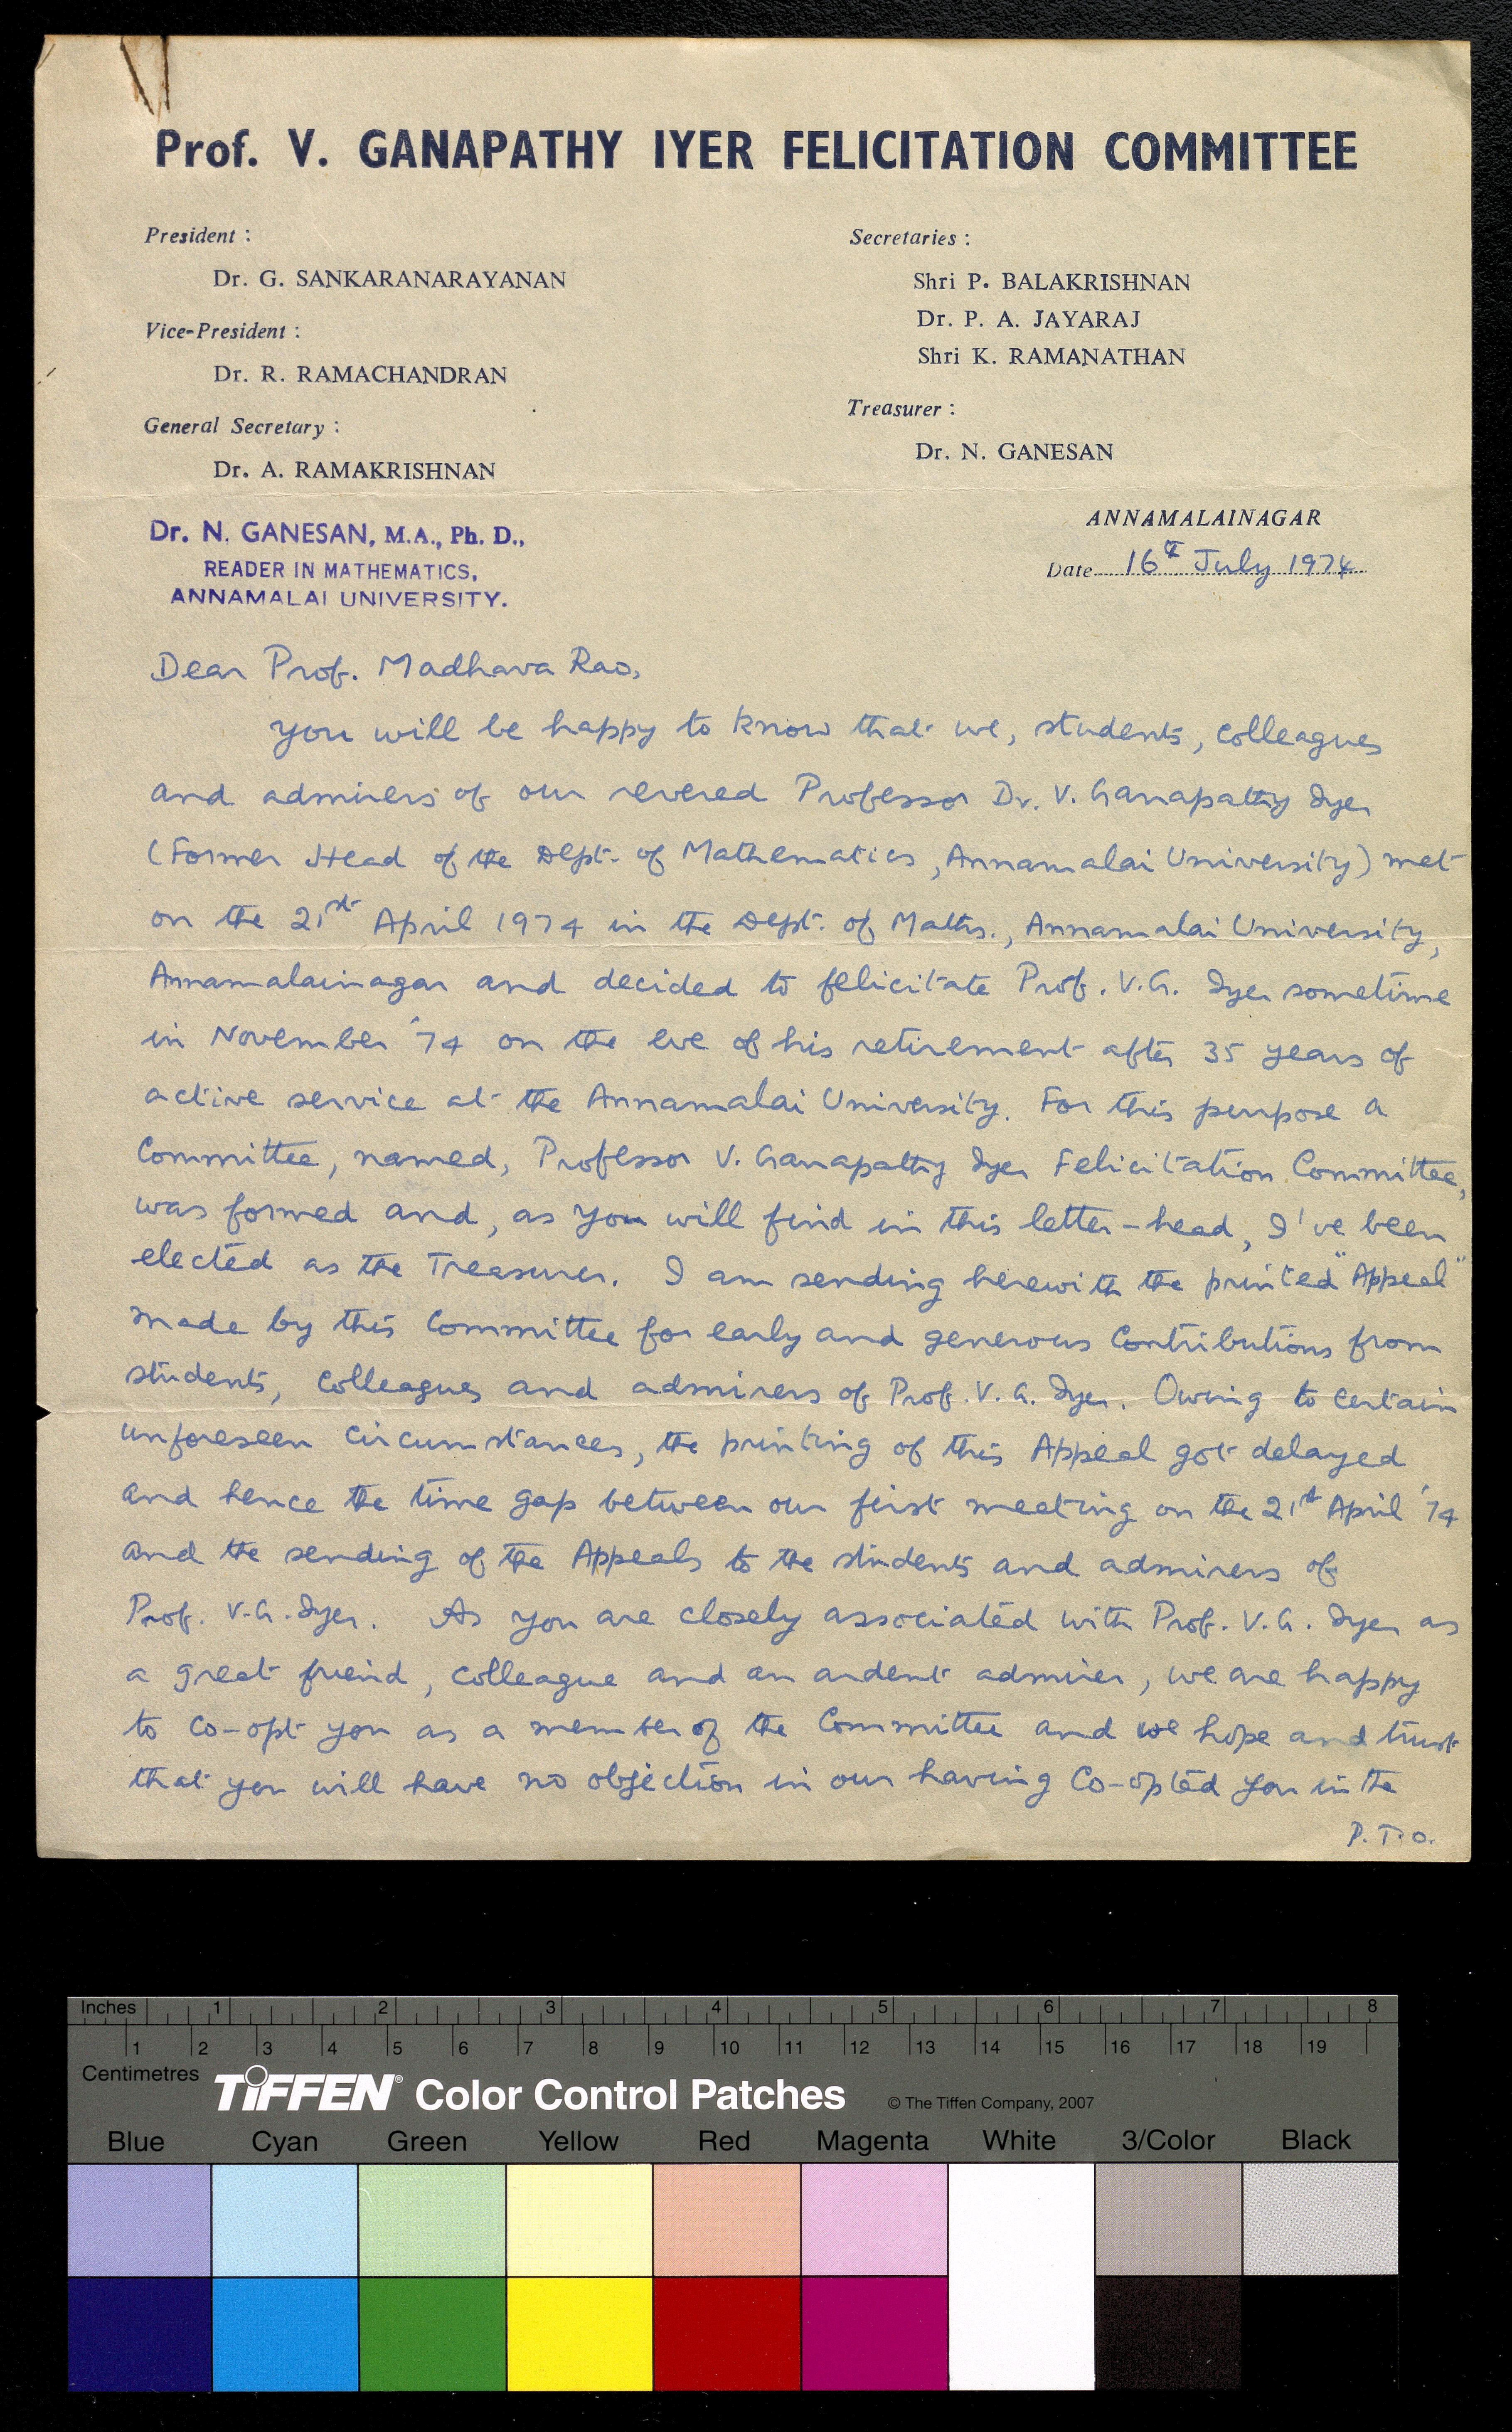 Prof. V. GANAPATHY IYER FELICITATION COMMITTEE
President :
Dr. G. SANKARANARAYANAN
Vice-President :
Dr. R. RAMACHANDRAN
General Secretary :
Dr. A. RAMAKRISHNAN
Secretaries :
Shri P. BALAKRISHNAN
Dr. P. A. JAYARAJ
Shri K. RAMANATHAN
Treasurer :
Dr. N. GANESAN
Dr. N. GANESAN, M.A., Ph. D.,
READER IN MATHEMATICS,
ANNAMALAI UNIVERSITY.
ANNAMALAINAGAR
Date 16th July 1974
Dear Prof. Madhava Rao,
You will be happy to know that we, students, colleagues
and admirers of our revered Professor Dr. V. Ganapathy Iyer
(Former Head of the Dept. of Mathematics, Annamalai University) met
on the 21st April 1974 in the Dept. of Maths., Annamalai University,
Annamalainagar and decided to felicitate Prof. V.G. Iyer sometime
in November '74 on the eve of his retirement after 35 years of
active service at the Annamalai University. For this purpose a
Committee, named, Professor V. Ganapathy Iyer Felicitation Committee,
was formed and, as you will find in this letter-head, I've been
elected as the Treasurer. I am sending herewith the printed "Appeal"
made by this Committee for early and generous contributions from
students, colleagues and admirers of Prof. V. G. Iyer. Owing to certain
unforeseen circumstances, the printing of this Appeal got delayed
and hence the time gap between our first meeting on the 21st April '74
and the sending of the Appeals to the students and admirers of
Prof. V.G. Iyer. As you are closely associated with Prof. V.G. Iyer as
a great friend, colleague and an ardent admirer, we are happy
to co-opt you as a member of the Committee and we hope and trust
that you will have no objection in our having Co-opted you in the
P.T.O.
Inches 1 2 3 4 5 6 7 8
1 2 3 4 5 6 7 8 9 10 11 12 13 14 15 16 17 18 19
Centimetres
TIFFEN® Color Control Patches © The Tiffen Company, 2007
Blue Cyan Green Yellow Red Magenta White 3/Color Black